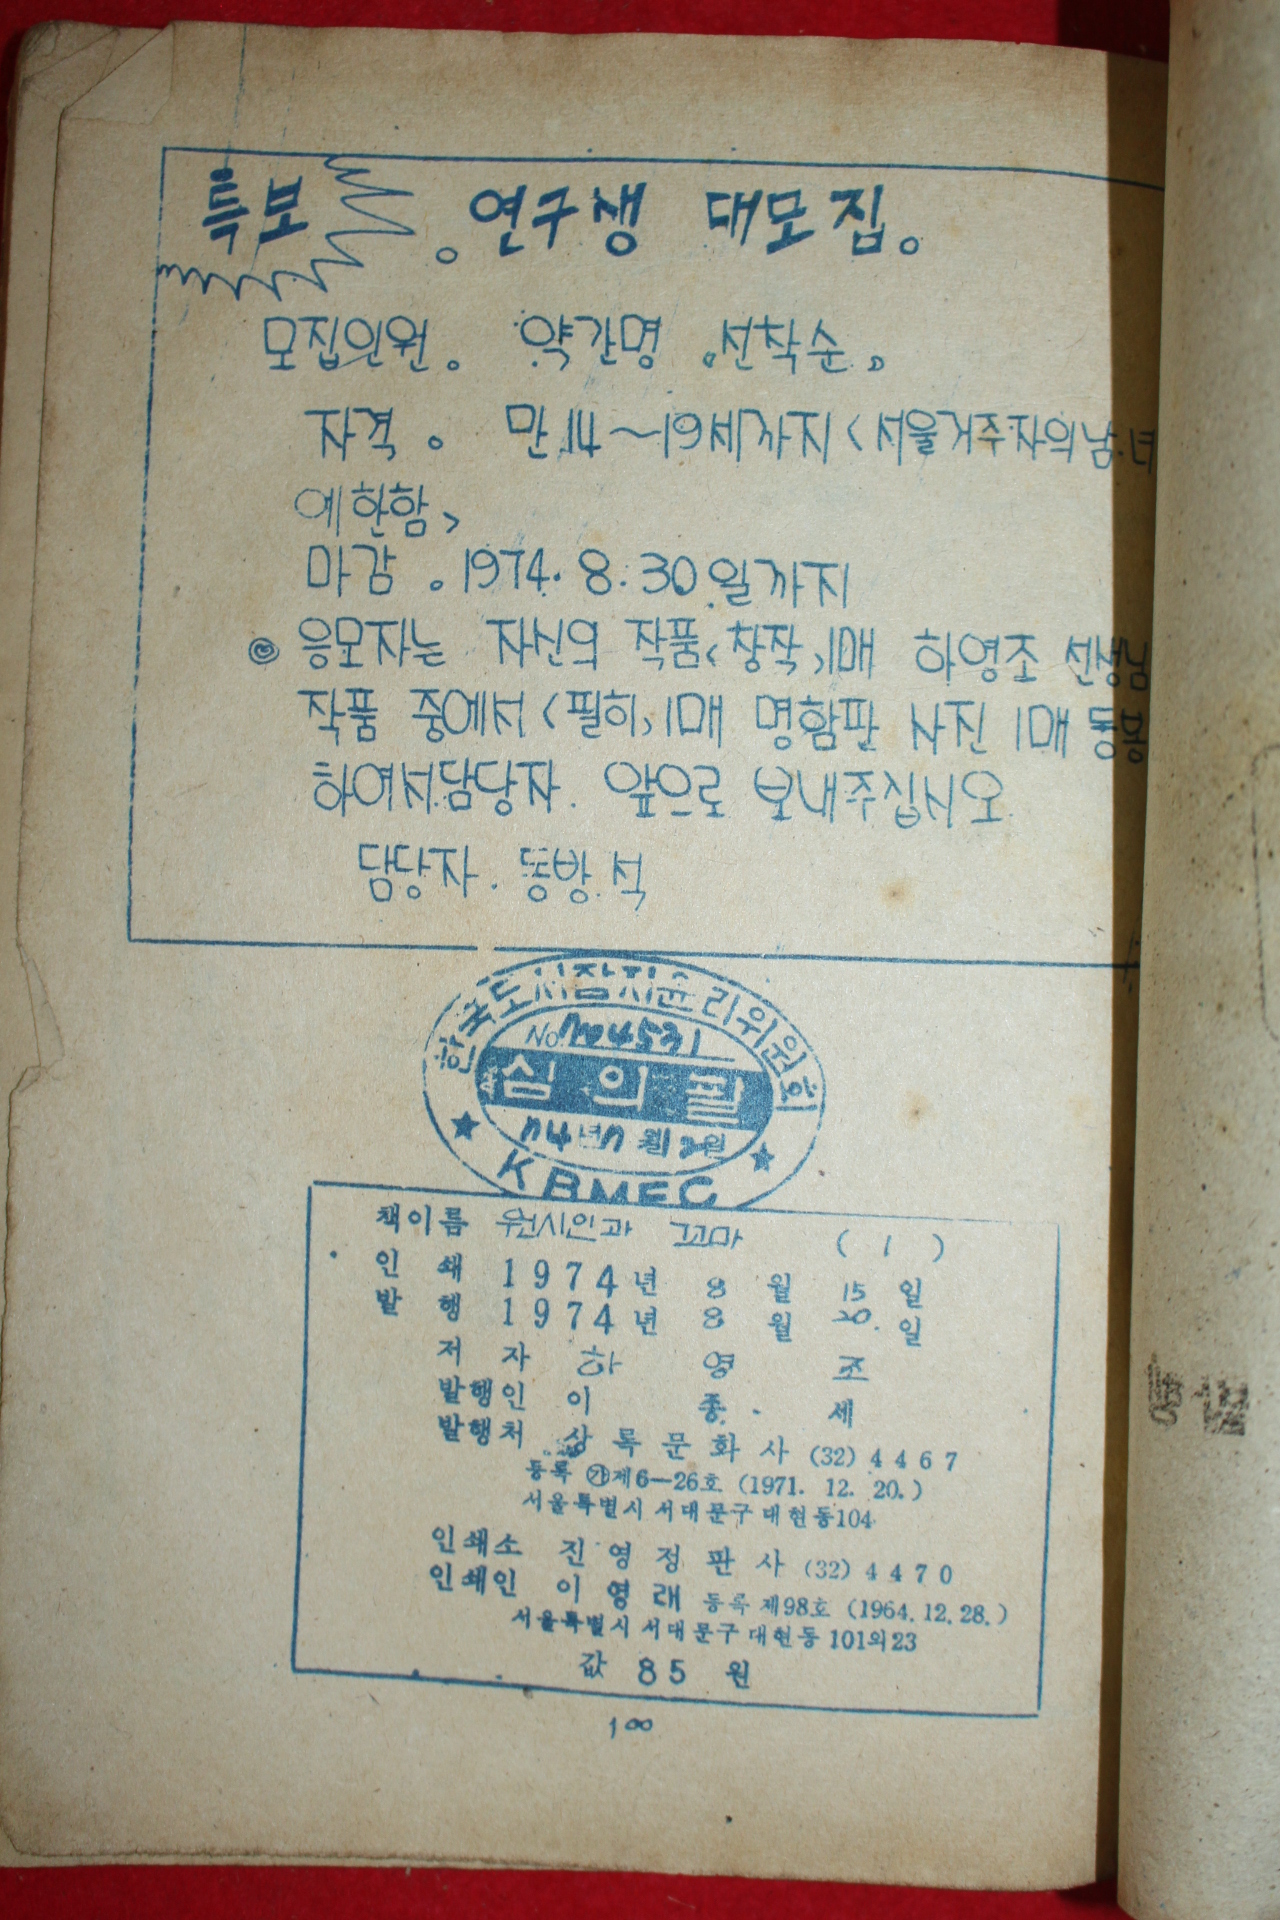 특보 。연구생 대모집。
모집인원。 약간명 "선착순"
자격。 만14~19세까지<서울거주자의남.녀
에한함>
마감。1974.8.30일까지
◎ 응모자는 자신의 작품<창작>1매 하영조 선생님
작품 중에서<필히>1매 명함판 사진 1매 동봉
하여서담당자. 앞으로 보내주십시오
담당자. 동방 석
한국도서잡지윤리위원회
No. 4531
심의필
74년7월12일
KBMEC
책이름 원시인과 꼬마 (1)
인쇄 1974년 8월 15일
발행 1974년 8월 20.일
저자 하영조
발행인 이종세
발행처 상록문화사 (32) 4467
등록 ㉮제6—26호 (1971. 12. 20.)
서울특별시 서대문구 대현동104
인쇄소 진영정판사 (32) 4470
인쇄인 이영래 등록 제98호 (1964. 12. 28.)
서울특별시 서대문구 대현동 101의23
값 85 원
100